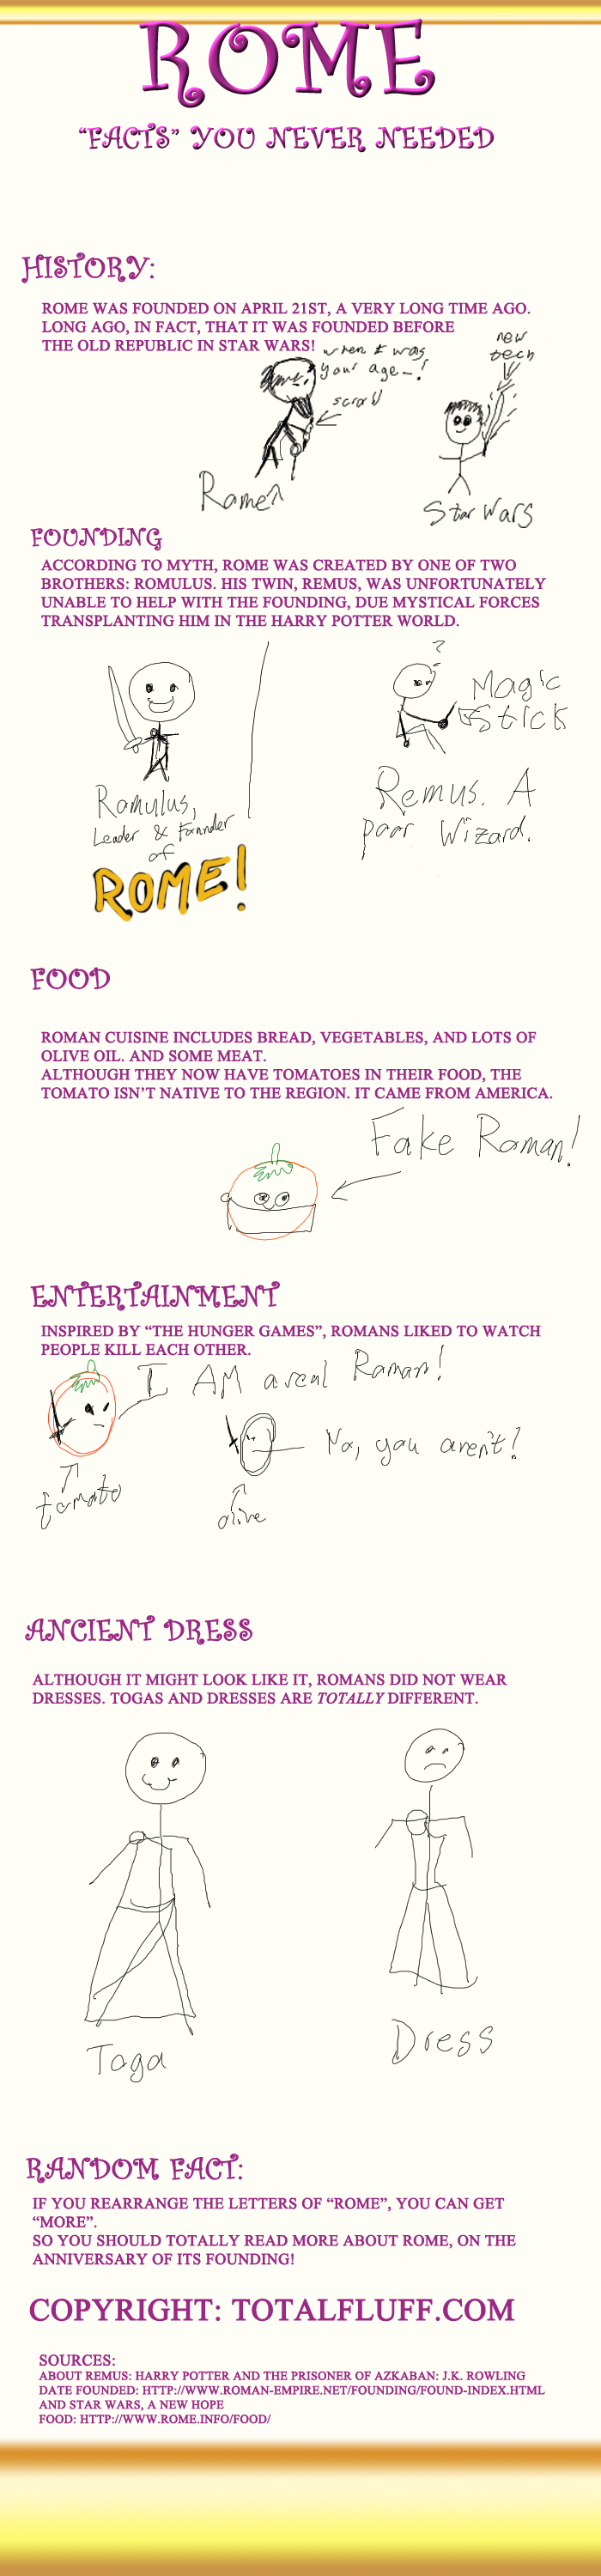 ROME
"FACTS" YOU NEVER NEEDED
HISTORY:
ROME WAS FOUNDED ON APRIL 21ST, A VERY LONG TIME AGO.
LONG AGO, IN FACT, THAT IT WAS FOUNDED BEFORE
THE OLD REPUBLIC IN STAR WARS!
when I was
your age-!
scroll
new
tech
Rome
Star Wars
FOUNDING
ACCORDING TO MYTH, ROME WAS CREATED BY ONE OF TWO
BROTHERS: ROMULUS. HIS TWIN, REMUS, WAS UNFORTUNATELY
UNABLE TO HELP WITH THE FOUNDING, DUE MYSTICAL FORCES
TRANSPLANTING HIM IN THE HARRY POTTER WORLD.
?
Magic
Stick
Romulus,
Leader & Founder
of
ROME!
Remus. A
poor Wizard.
FOOD
ROMAN CUISINE INCLUDES BREAD, VEGETABLES, AND LOTS OF
OLIVE OIL. AND SOME MEAT.
ALTHOUGH THEY NOW HAVE TOMATOES IN THEIR FOOD, THE
TOMATO ISN'T NATIVE TO THE REGION. IT CAME FROM AMERICA.
Fake Roman!
ENTERTAINMENT
INSPIRED BY "THE HUNGER GAMES", ROMANS LIKED TO WATCH
PEOPLE KILL EACH OTHER.
I AM a real Roman!
No, you aren't!
tomato
olive
ANCIENT DRESS
ALTHOUGH IT MIGHT LOOK LIKE IT, ROMANS DID NOT WEAR
DRESSES. TOGAS AND DRESSES ARE TOTALLY DIFFERENT.
Toga
Dress
RANDOM FACT:
IF YOU REARRANGE THE LETTERS OF "ROME", YOU CAN GET
"MORE".
SO YOU SHOULD TOTALLY READ MORE ABOUT ROME, ON THE
ANNIVERSARY OF ITS FOUNDING!
COPYRIGHT: TOTALFLUFF.COM
SOURCES:
ABOUT REMUS: HARRY POTTER AND THE PRISONER OF AZKABAN: J.K. ROWLING
DATE FOUNDED: HTTP://WWW.ROMAN-EMPIRE.NET/FOUNDING/FOUND-INDEX.HTML
AND STAR WARS, A NEW HOPE
FOOD: HTTP://WWW.ROME.INFO/FOOD/